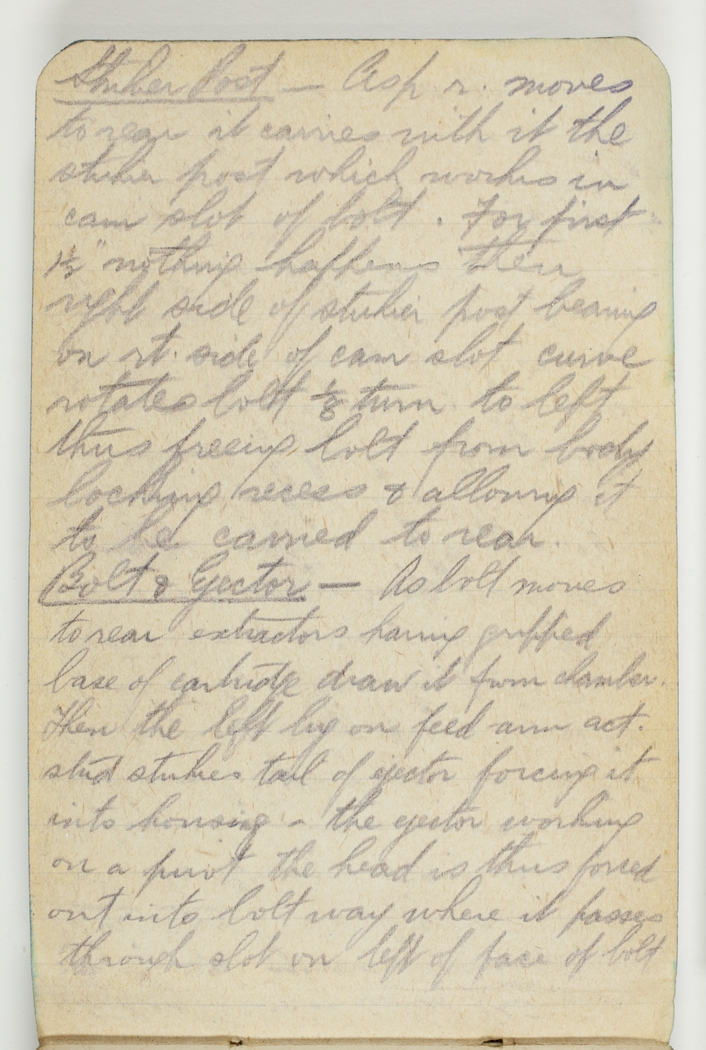 Striker Post — As p r. moves
to rear it carries with it the
striker post which works in
cam slot of bolt. For first
1½" nothing happens then
right side of striker post bearing
on rt. side of cam slot curve
rotates bolt ⅛ turn to left
thus freeing bolt from body
locking recess & allowing it
to be carried to rear.
Bolt & Ejector — As bolt moves
to rear extractors having gripped
base of cartridge draw it from chamber.
Then the left lug on feed arm act.
stud strikes tail of ejector forcing it
into housing - the ejector working
on a pivot the head is thus forced
out into bolt way where it passes
through slot on left of face of bolt